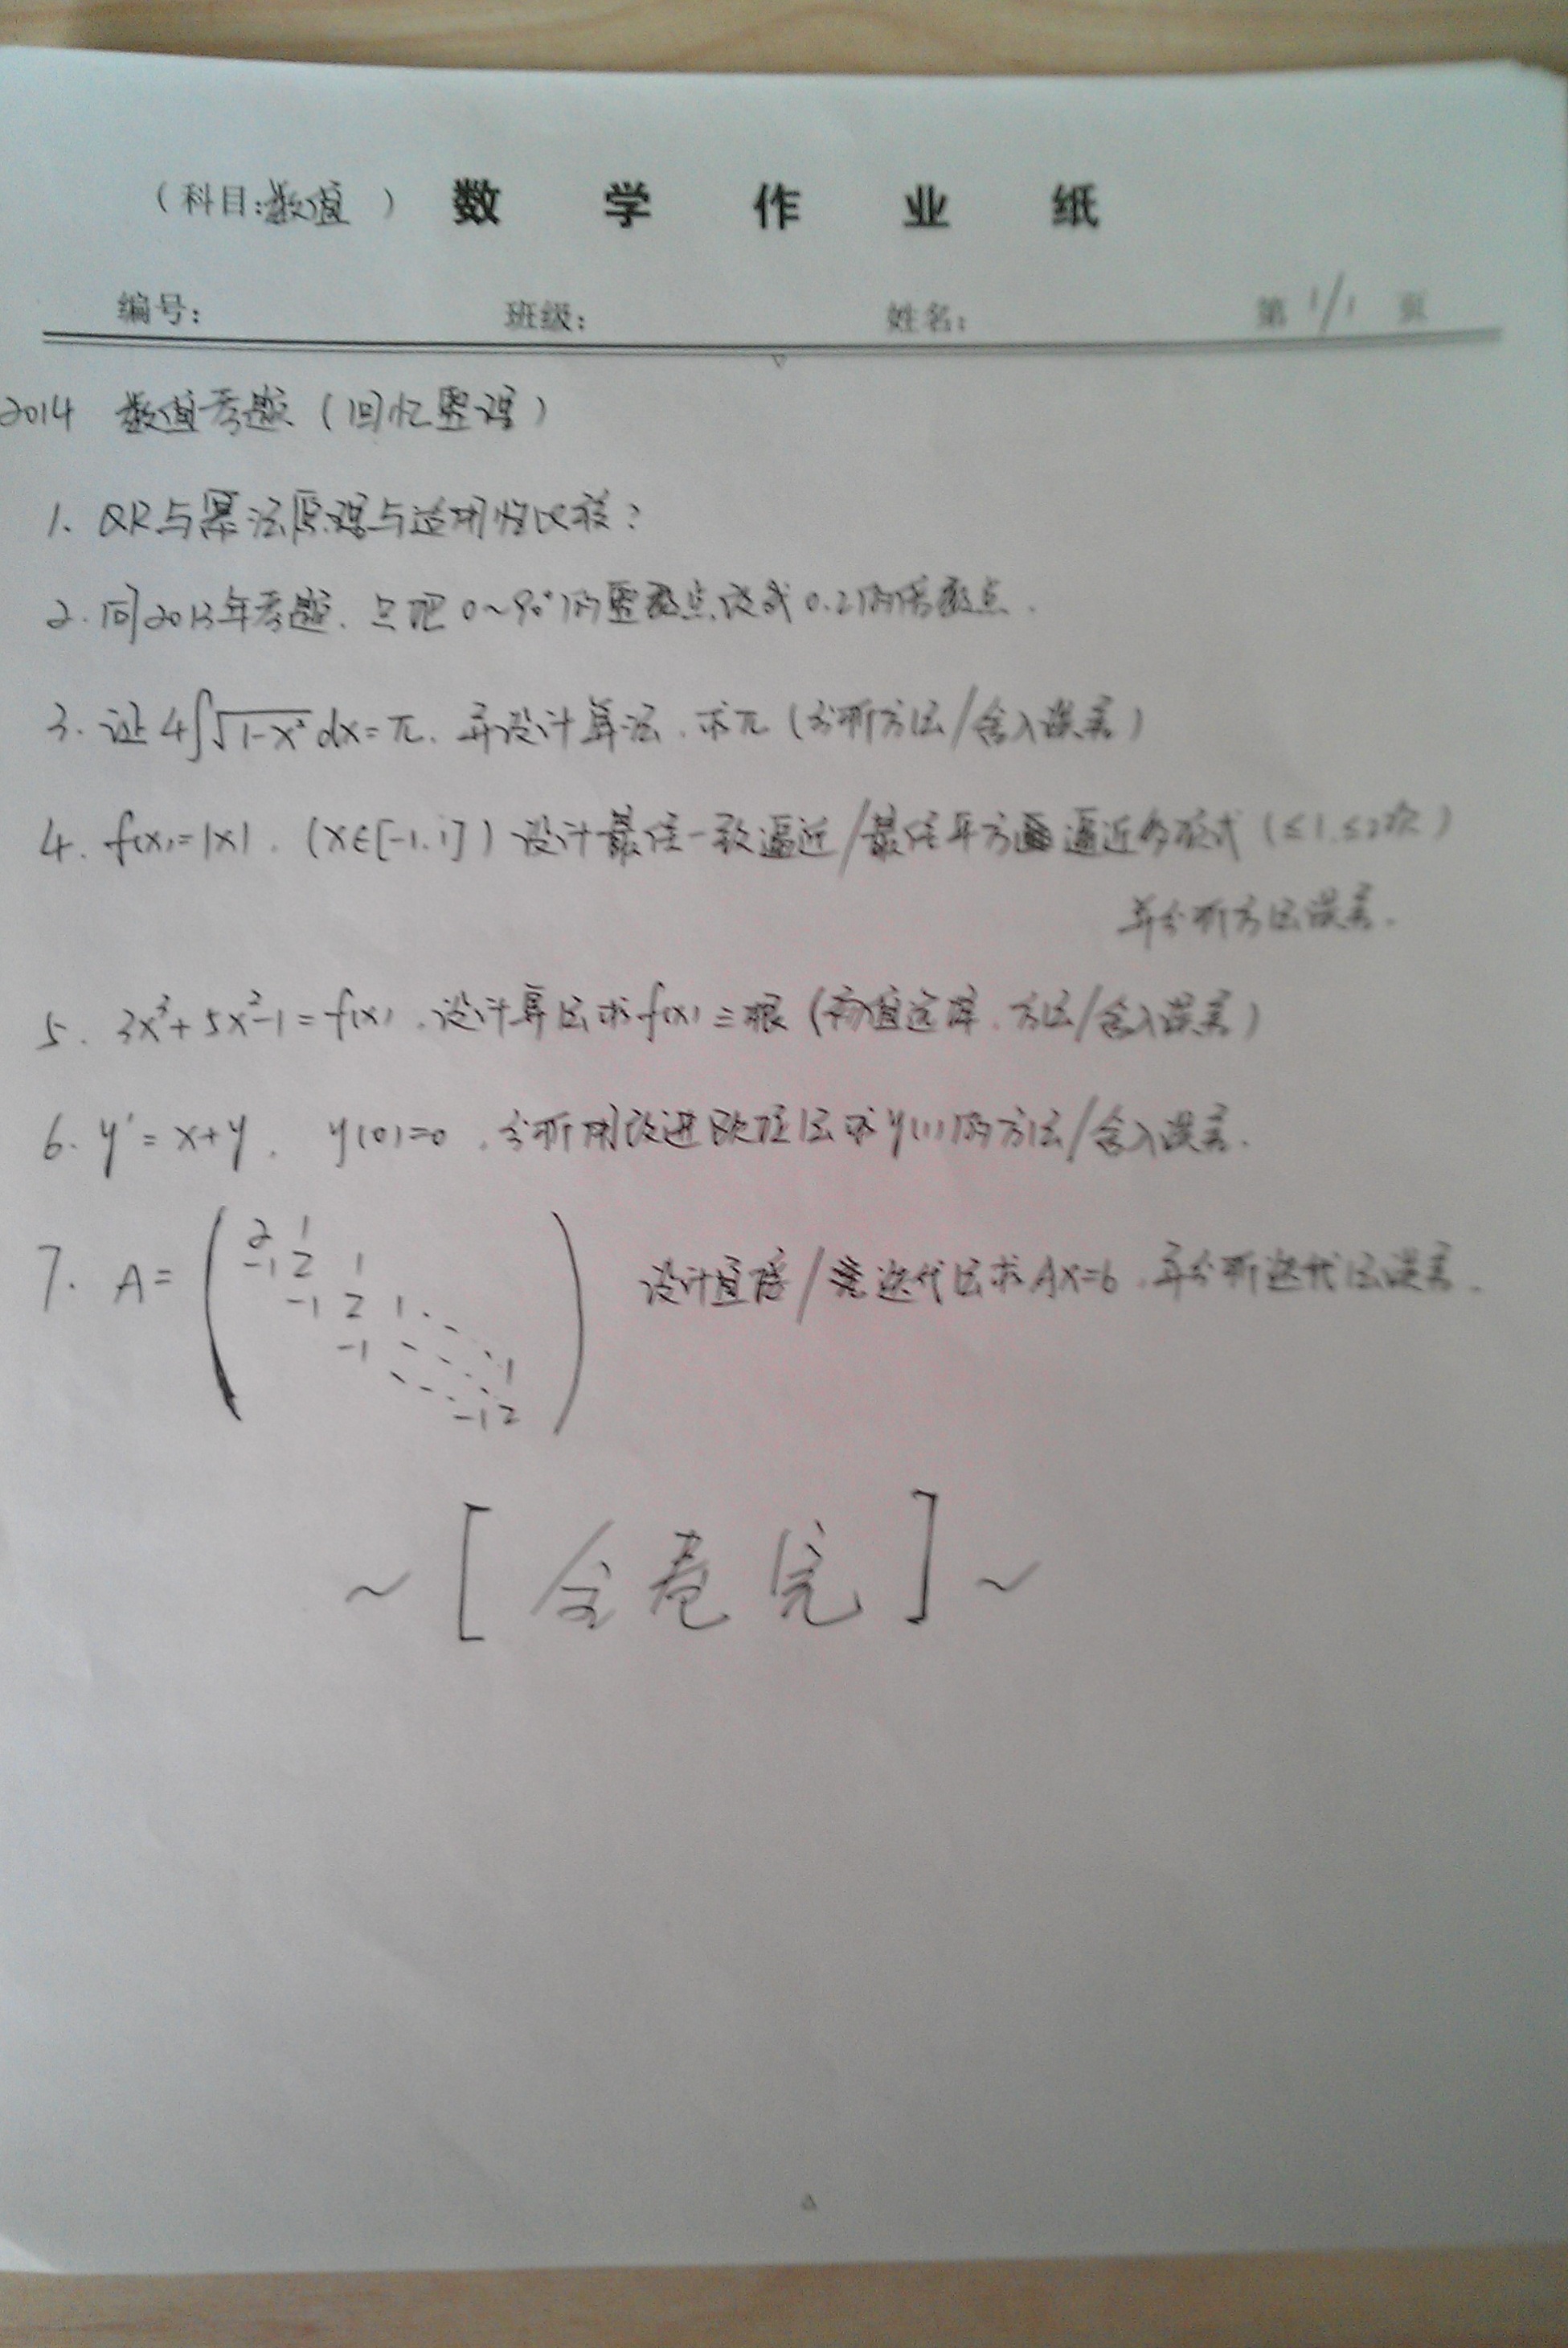 (科目:数值) 数学作业纸
编号: 班级: 姓名: 第 1/1 页
2014 数值考题(回忆整理)
1. QR与幂法原理与适用性比较?
2. 同2013年考题. 只把0~90°的整数点改成0.2的倍数点.
3. 证 4∫√(1-x²) dx=π. 并设计算法.求π(分析方法/舍入误差)
4. f(x)=|x|. (x∈[-1,1]) 设计最佳一致逼近/最佳平方逼近多项式(≤1.≤2次)
并分析方法误差.
5. 3x³+5x²-1=f(x).设计算法求f(x)三根(初值选择.方法/舍入误差)
6. y'=x+y. y(0)=0.分析用改进欧拉法求y(1)的方法/舍入误差.
7. A= ( 2 1 设计直接/迭代法求Ax=b.并分析迭代法误差.
-1 2 1
-1 2 1
-1 1
-1 2 )
~[全卷完]~